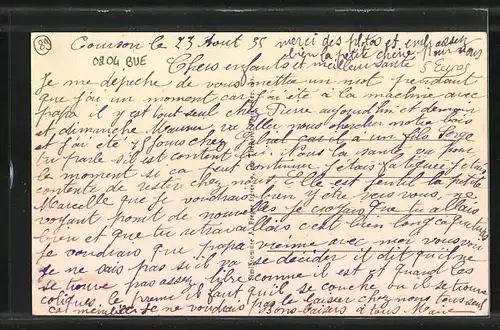 89
Courson le 23 Aout 35 merci des photos et embrassez
bien la petite chérie pour nous
0804 BUE
Chers enfants et meilleure santé
5 Euros
Je me dépeche de vous mettre un mot pendant
que j'ai un moment car j'ai été à la machine avec
papa il y est tout seul chez Pierre aujourd'hui et demain
et dimanche Maurice va aller nous chercher notre bois
et j'ai été 8 jours chez a un fils Serge
tu parle s'il est content Nous la santé va pour
le moment si ca peut continuer j'étais fatiguée j'étais
contente de rester chez nous Elle est gentil la petite
Marcelle que je voudrais bien y etre vers vous
voyant point de nouvelles je croyais que tu allais
bien et que tu travaillais c'est bien long
je voudrais que papa vienne avec moi vous voir
je ne sais pas si il va se décider il dit qu'il ne
se trouve pas assez libre comme il est et quand les
coliques le prenne il faut qu'il se couche ou il se trouve
je ne voudrais pas le laisser chez nous tous seul
Bons baisers à tous Marie